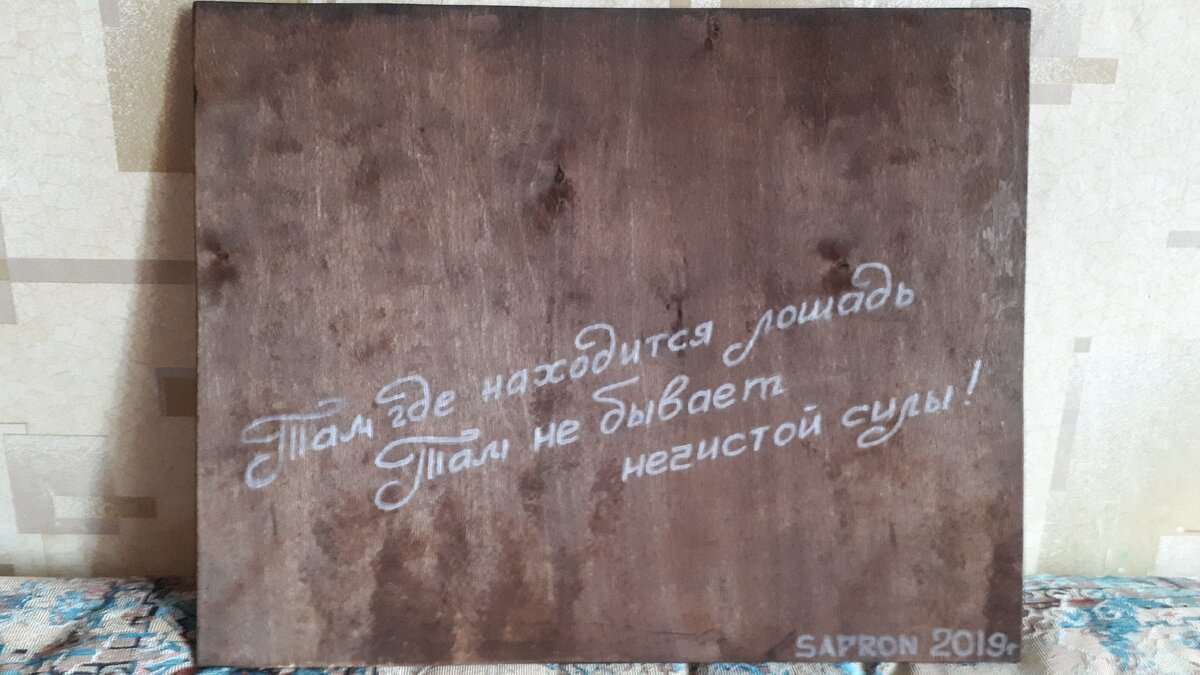 Там где находится лошадь
Там не бывает
нечистой силы!
SAPRON 2019г